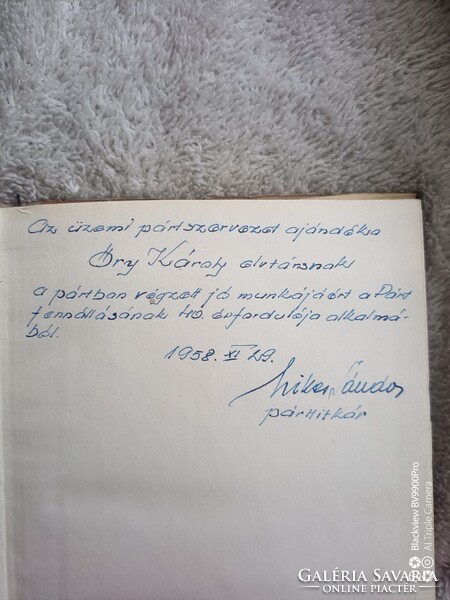 Az üzemi pártszervezet ajándéka
Őry Károly elvtársnak
a pártban végzett jó munkájáért a Párt
fennállásának 40. évfordulója alkalmá-
ból.
1958. XI 29.
Sándor
párttitkár
Blackview BV9900Pro
AI Triple Camera
GALÉRIA SAVARIA
ONLINE PIACTÉR